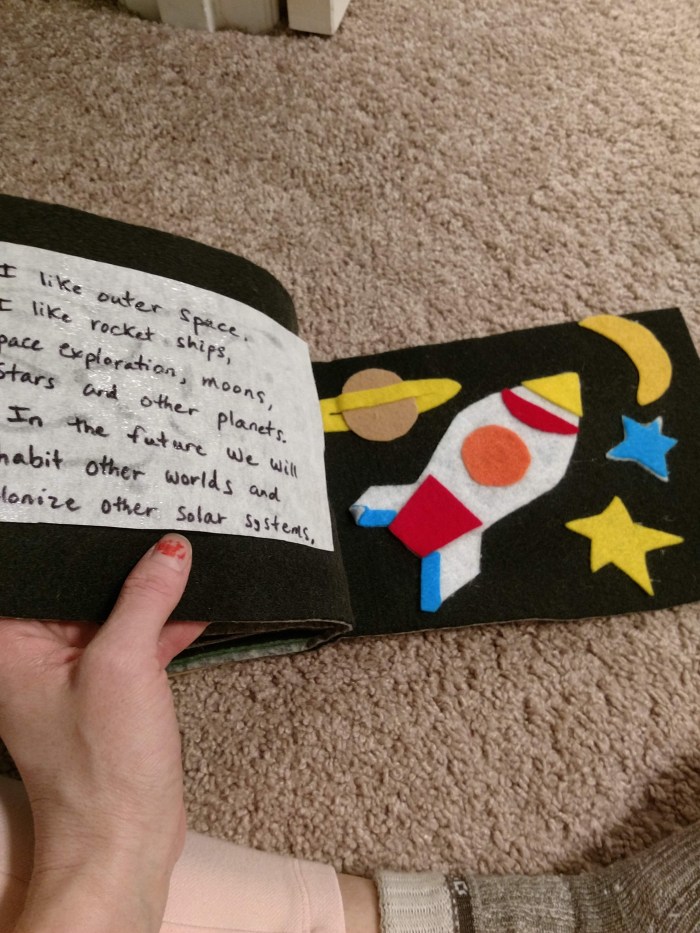 I like outer space.
I like rocket ships,
pace exploration, moons,
stars and other planets.
In the future we will
habit other worlds and
lonize other solar systems.